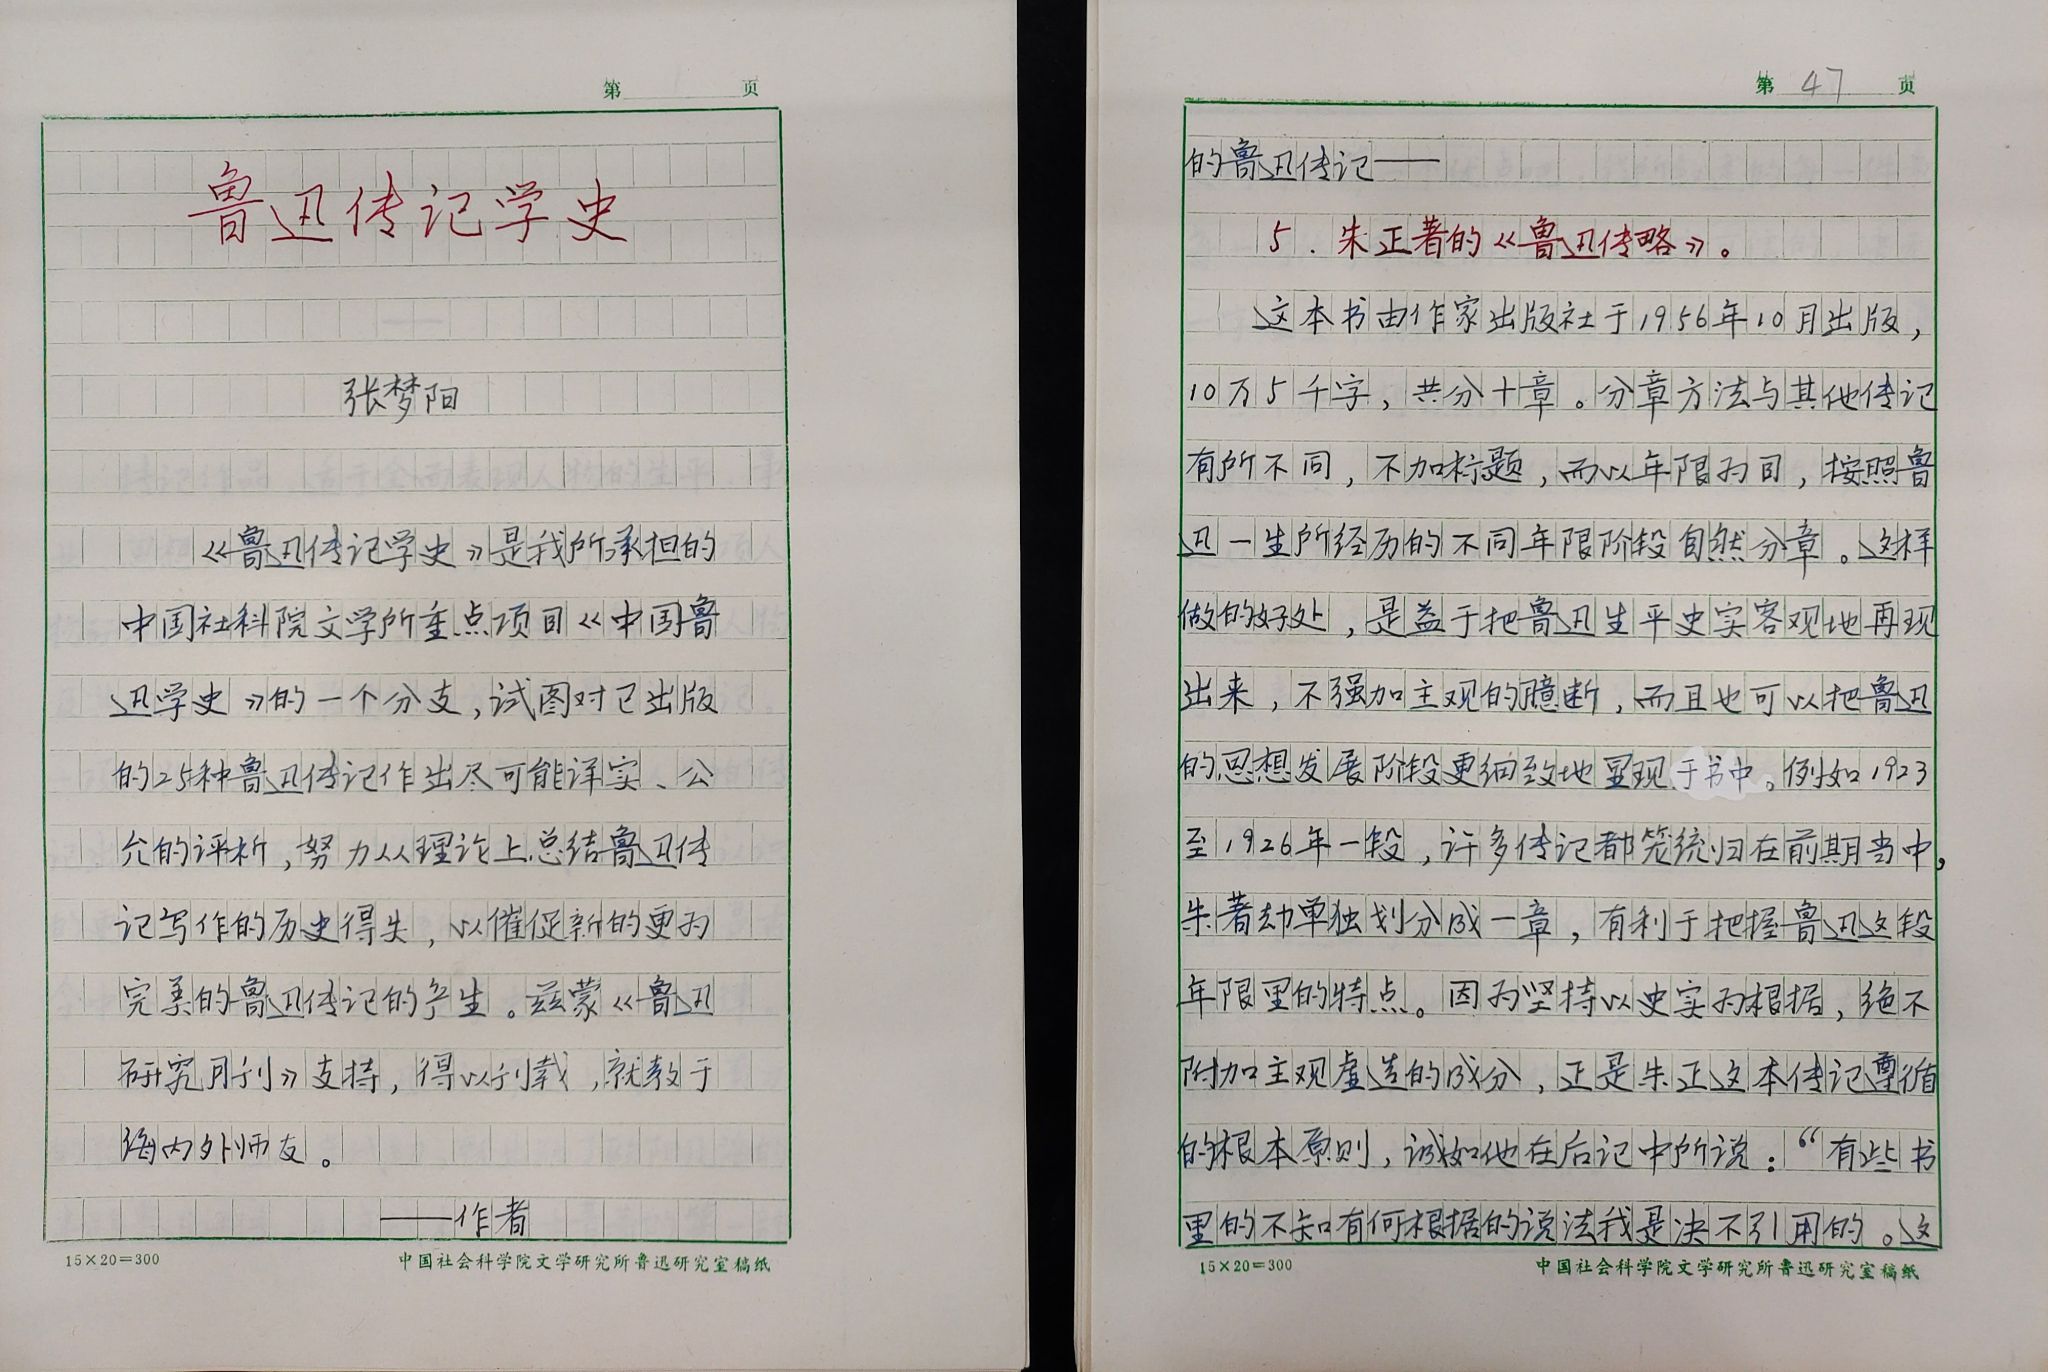 第 1 页
鲁迅传记学史
张梦阳
《鲁迅传记学史》是我所承担的
中国社科院文学所重点项目《中国鲁
迅学史》的一个分支，试图对已出版
的25种鲁迅传记作出尽可能详实、公
允的评析，努力从理论上总结鲁迅传
记写作的历史得失，以催促新的更为
完美的鲁迅传记的产生。兹蒙《鲁迅
研究月刊》支持，得以刊载，就教于
海内外师友。
——作者
15×20=300
中国社会科学院文学研究所鲁迅研究室稿纸
第 47 页
的鲁迅传记——
5．朱正著的《鲁迅传略》。
这本书由作家出版社于1956年10月出版，
10万5千字，共分十章。分章方法与其他传记
有所不同，不加标题，而以年限为目，按照鲁
迅一生所经历的不同年限阶段自然分章。这样
做的好处，是益于把鲁迅生平史实客观地再现
出来，不强加主观的臆断，而且也可以把鲁迅
的思想发展阶段更细致地显现于书中。例如1923
至1926年一段，许多传记都笼统归在前期当中，
朱著却单独划分成一章，有利于把握鲁迅这段
年限里的特点。因为坚持以史实为根据，绝不
附加主观虚造的成分，正是朱正这本传记遵循
的根本原则，诚如他在后记中所说：“有些书
里的不知有何根据的说法我是决不引用的。这
15×20=300
中国社会科学院文学研究所鲁迅研究室稿纸